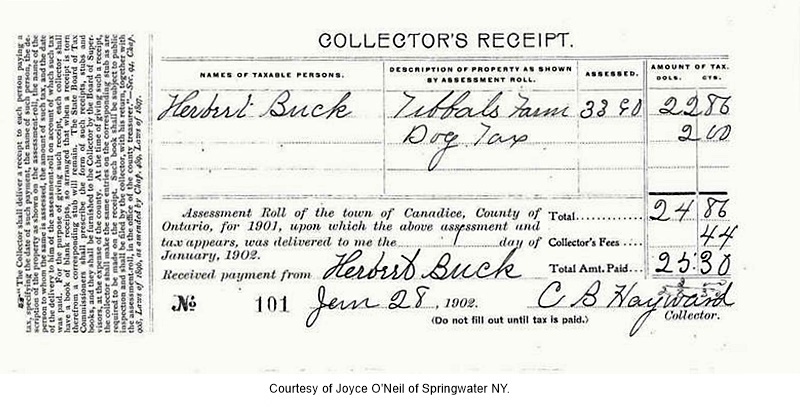 "The Collector shall deliver a receipt to each person paying a
tax, specifying the date of such payment, the name of such person, the de-
scription of the property as shown on the assessment-roll, the name of the
person to whom the same is assessed, the amount of such tax, and the date
of the delivery to him of the assessment-roll on account of which such tax
was paid. For the purpose of giving such receipt, each collector shall
have a book of blank receipts, so arranged that when a receipt is torn
therefrom a corresponding stub will remain. The State Board of Tax
Commissioners shall prescribe the form of such receipts, stubs and
books, and they shall be furnished to the Collector by the Board of Super-
visors, at the expense of the county. At the time of giving such a receipt,
the collector shall make the same entries on the corresponding stub as are
required to be made on the receipt. Such book shall be subject to public
inspection and shall be filed by the collector, with his return, together with
the assessment-roll, in the office of the county treasurer."—Sec. 94, Chap.
908, Laws of 1896, as amended by Chap. 489, Laws of 1897.
COLLECTOR'S RECEIPT.
NAMES OF TAXABLE PERSONS. DESCRIPTION OF PROPERTY AS SHOWN BY ASSESSMENT ROLL. ASSESSED. AMOUNT OF TAX.
DOLS. CTS.
Herbert Buck Tibbals Farm 3390 22 86
Dog Tax 2 00
Assessment Roll of the town of Canadice, County of Total 24 86
Ontario, for 1901, upon which the above assessment and
tax appears, was delivered to me the 1 day of Collector's Fees 44
January, 1902.
Received payment from Herbert Buck Total Amt. Paid 25.30
No 101 Jan 28, 1902. C B Hayward
(Do not fill out until tax is paid.) Collector.
Courtesy of Joyce O'Neil of Springwater NY.